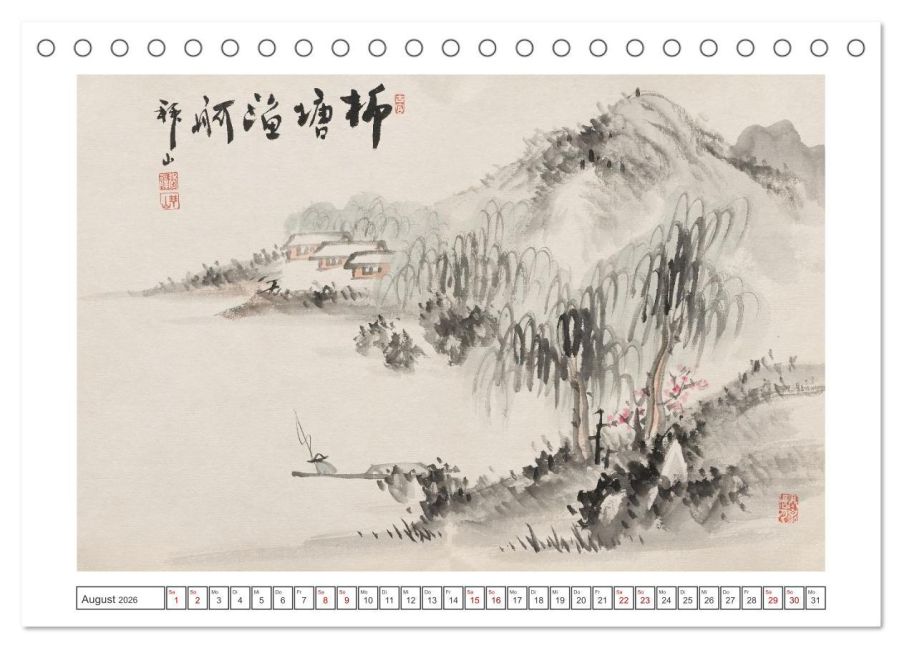 柳塘漁舸
August 2026 Sa 1 So 2 Mo 3 Di 4 Mi 5 Do 6 Fr 7 Sa 8 So 9 Mo 10 Di 11 Mi 12 Do 13 Fr 14 Sa 15 So 16 Mo 17 Di 18 Mi 19 Do 20 Fr 21 Sa 22 So 23 Mo 24 Di 25 Mi 26 Do 27 Fr 28 Sa 29 So 30 Mo 31